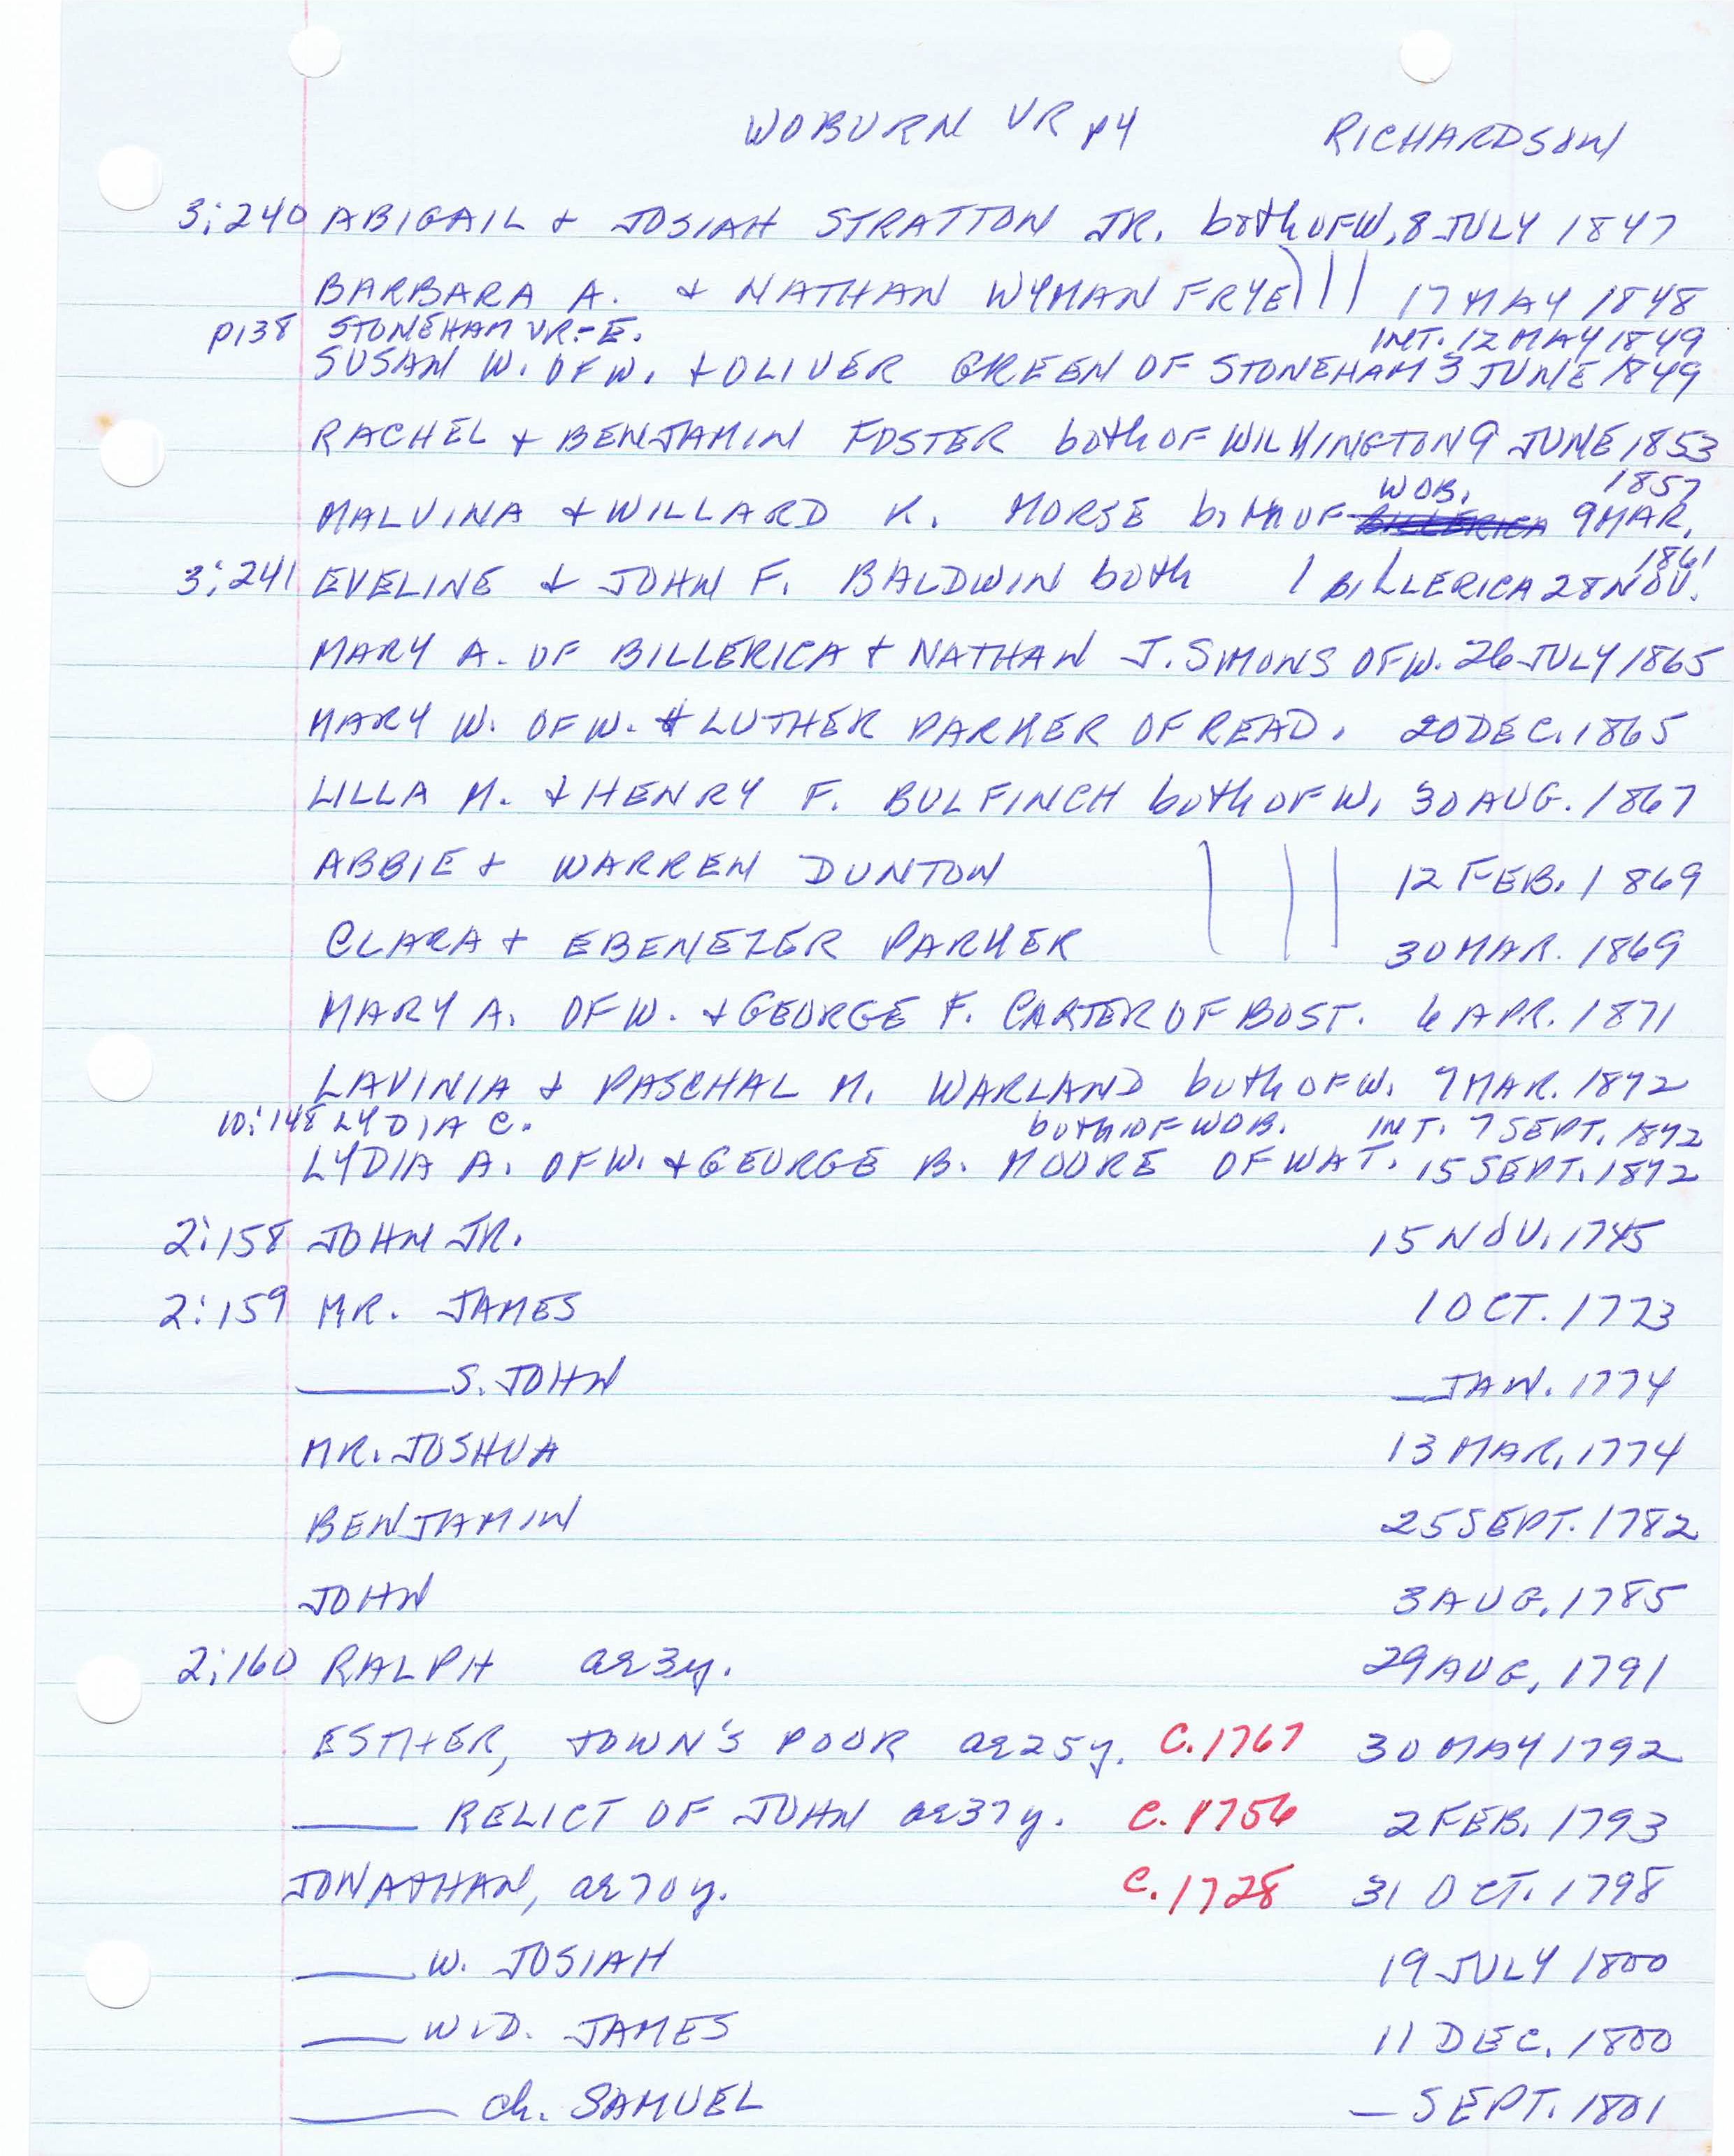 WOBURN VR p4 RICHARDSON
3:240 ABIGAIL & JOSIAH STRATTON JR. both OF W. 8 JULY 1847
BARBARA A. & NATHAN WYMAN FRYE ) | | 17 MAY 1848
p138 STONEHAM VR.-E. INT. 12 MAY 1849
SUSAN W. OF W. & OLIVER GREEN OF STONEHAM 3 JUNE 1849
RACHEL & BENJAMIN FOSTER both OF WILMINGTON 9 JUNE 1853
WOB. 1857
MALVINA & WILLARD K. MORSE both OF BILLERICA 9 MAR.
1861
3:241 EVELINE & JOHN F. BALDWIN both | BILLERICA 28 NOV.
MARY A. OF BILLERICA & NATHAN J. SIMONS OF W. 26 JULY 1865
MARY W. OF W. & LUTHER PARKER OF READ. 20 DEC. 1865
LILLA M. & HENRY F. BULFINCH both OF W. 30 AUG. 1867
ABBIE & WARREN DUNTON | | | 12 FEB. 1869
CLARA & EBENEZER PARKER 30 MAR. 1869
MARY A. OF W. & GEORGE F. CARTER OF BOST. 6 APR. 1871
LAVINIA & PASCHAL M. WARLAND both OF W. 7 MAR. 1872
10:148 LYDIA C. both OF WOB. INT. 7 SEPT. 1872
LYDIA A. OF W. & GEORGE B. MOORE OF WAT. 15 SEPT. 1872
2:158 JOHN JR. 15 NOV. 1745
2:159 MR. JAMES 1 OCT. 1773
____ S. JOHN _ JAN. 1774
MR. JOSHUA 13 MAR. 1774
BENJAMIN 25 SEPT. 1782
JOHN 3 AUG. 1785
2:160 RALPH ae 3y. 29 AUG. 1791
ESTHER, TOWN'S POOR ae 25y. C. 1767 30 MAY 1792
____ RELICT OF JOHN ae 37y. C. 1756 2 FEB. 1793
JONATHAN, ae 70y. C. 1728 31 OCT. 1798
____ W. JOSIAH 19 JULY 1800
____ WID. JAMES 11 DEC. 1800
____ ch. SAMUEL _ SEPT. 1801